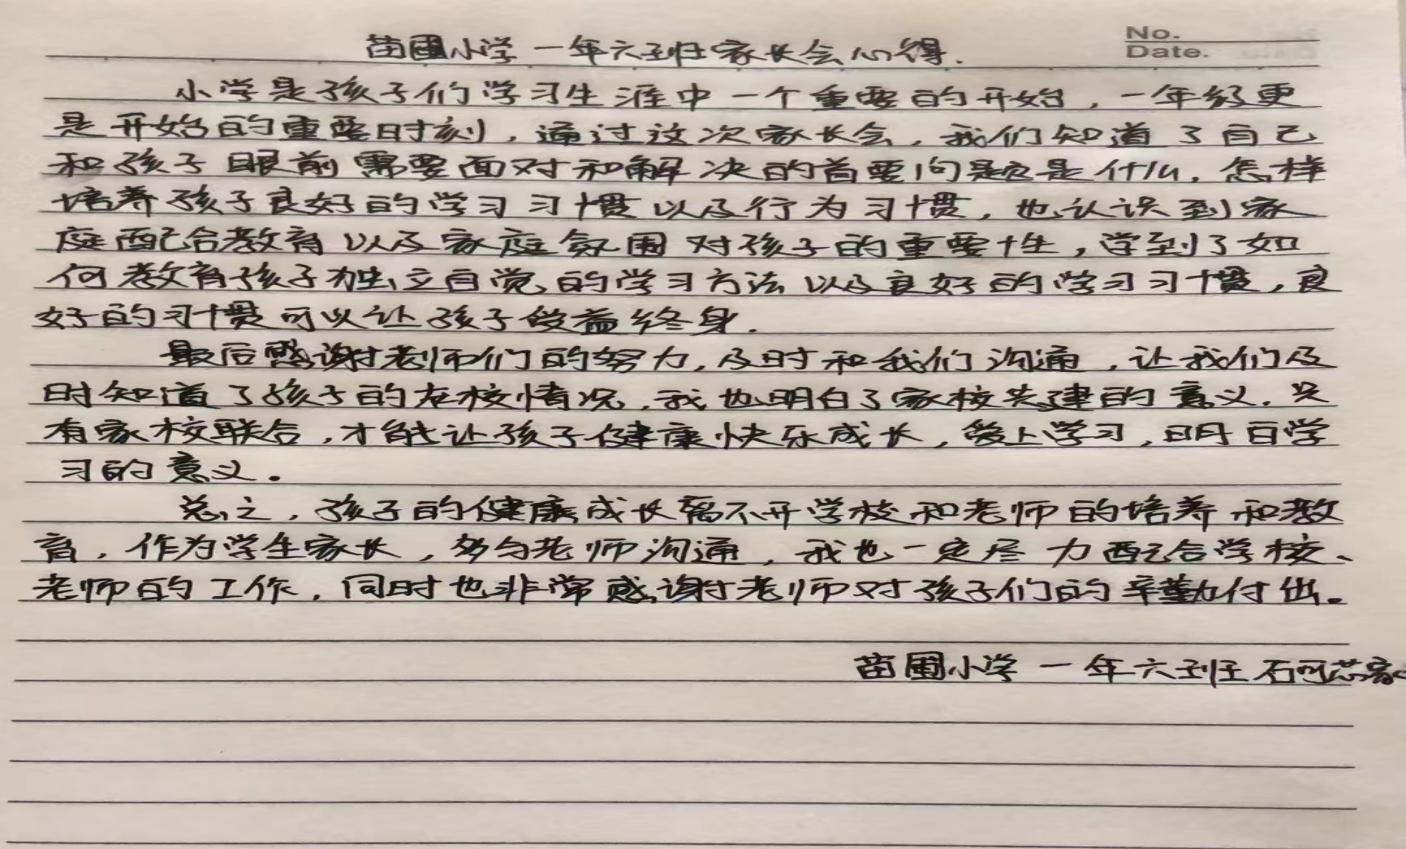 苗圃小学一年六班家长会心得.
No.
Date.
小学是孩子们学习生涯中一个重要的开始，一年级更
是开始的重要时刻，通过这次家长会，我们知道了自己
和孩子眼前需要面对和解决的首要问题是什么，怎样
培养孩子良好的学习习惯以及行为习惯，也认识到家
庭配合教育以及家庭氛围对孩子的重要性，学到了如
何教育孩子独立自觉的学习方法以及良好的学习习惯，良
好的习惯可以让孩子受益终身.
最后感谢老师们的努力，及时和我们沟通，让我们及
时知道了孩子的在校情况，我也明白了家校共建的意义，只
有家校联合，才能让孩子健康快乐成长，爱上学习，明白学
习的意义。
总之，孩子的健康成长离不开学校和老师的培养和教
育，作为学生家长，多与老师沟通，我也一定尽力配合学校、
老师的工作，同时也非常感谢老师对孩子们的辛勤付出。
苗圃小学一年六班石可芯家